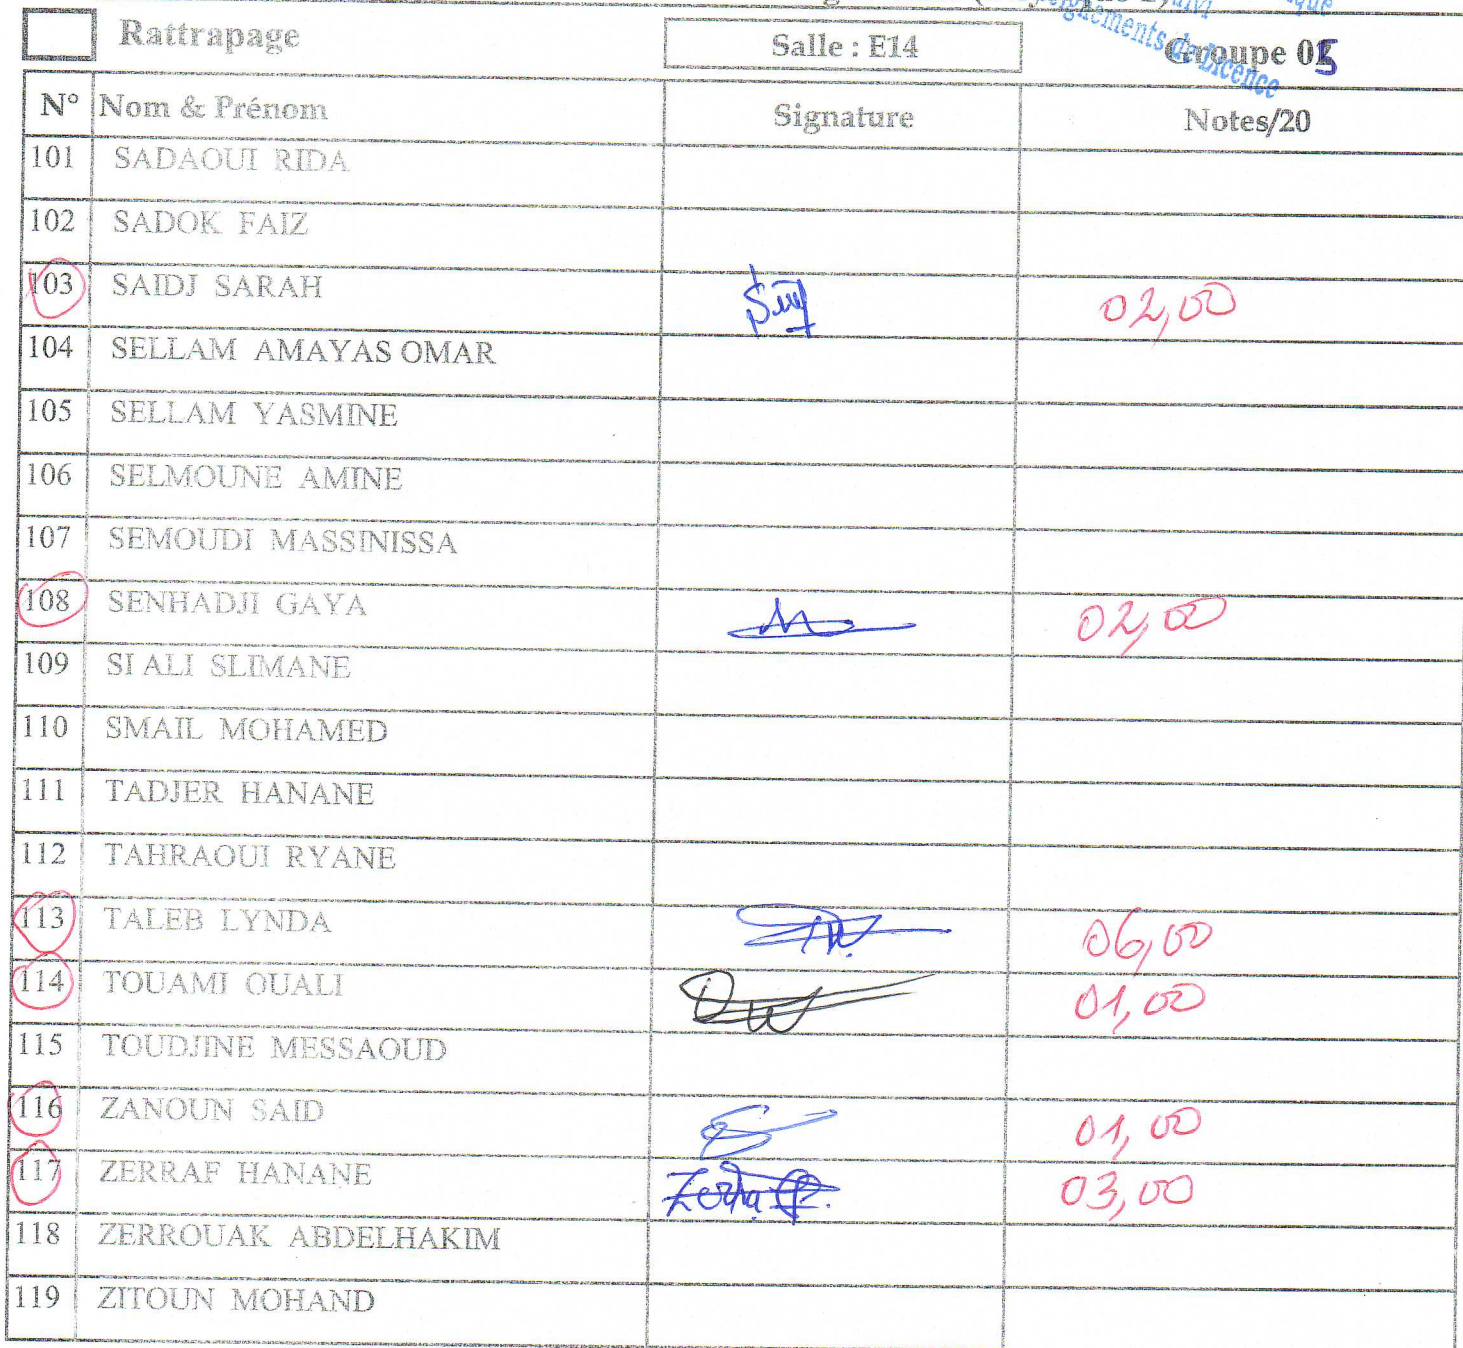 Rattrapage
Salle : E14
Groupe 05
N° Nom & Prénom Signature Notes/20
101 SADAOUI RIDA
102 SADOK FAIZ
103 SAIDJ SARAH 02,00
104 SELLAM AMAYAS OMAR
105 SELLAM YASMINE
106 SELMOUNE AMINE
107 SEMOUDI MASSINISSA
108 SENHADJI GAYA 02,00
109 SI ALI SLIMANE
110 SMAIL MOHAMED
111 TADJER HANANE
112 TAHRAOUI RYANE
113 TALEB LYNDA 06,00
114 TOUAMI OUALI 01,00
115 TOUDJINE MESSAOUD
116 ZANOUN SAID 01,00
117 ZERRAF HANANE 03,00
118 ZERROUAK ABDELHAKIM
119 ZITOUN MOHAND